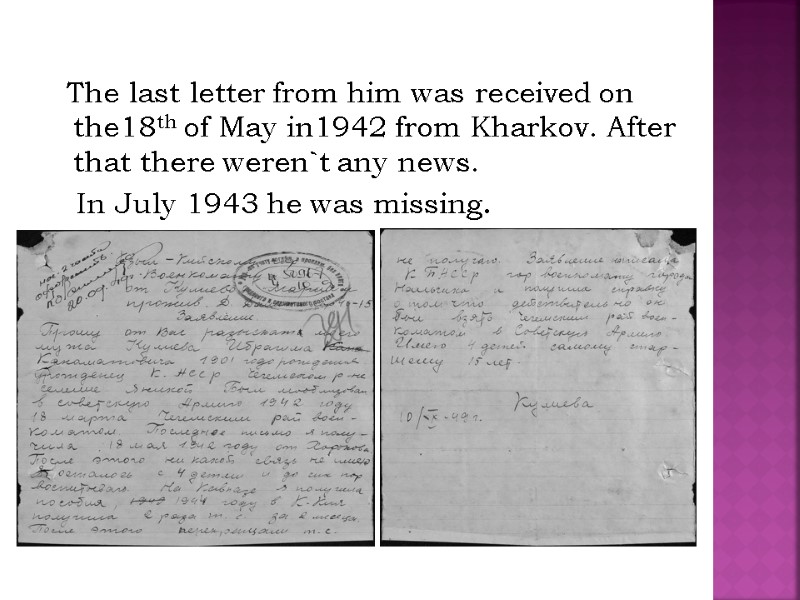 The last letter from him was received on
the18th of May in1942 from Kharkov. After
that there weren`t any news.
In July 1943 he was missing.
от Кулиевой
прожив.
Заявление
Прошу от Вас разыскать моего
мужа Кулиева Ибрагима
1901 года рождения
К. АССР Чегемского р-на
селение
в советскую Армию 1942 году
18 марта Чегемским рай воен-
коматом. Последнее письмо я полу-
чила 18 мая 1942 году от Харькова
После этого ни какой связь не имею
осталось с 4 детми и до сих пор
воспитываю. На Кавказе я получила
пособия, 1944 году в К-
получила 2 раза т. е. за 2 месяца.
После этого перекращали т. е.
не получаю. Заявление
гор военкомату города
Нальчика и получила справку
о том что действительно он
был взят Чегемским рай воен-
коматом в Советскую Армию
Имею 4 детей самому стар-
шему 15 лет.
Кулиева